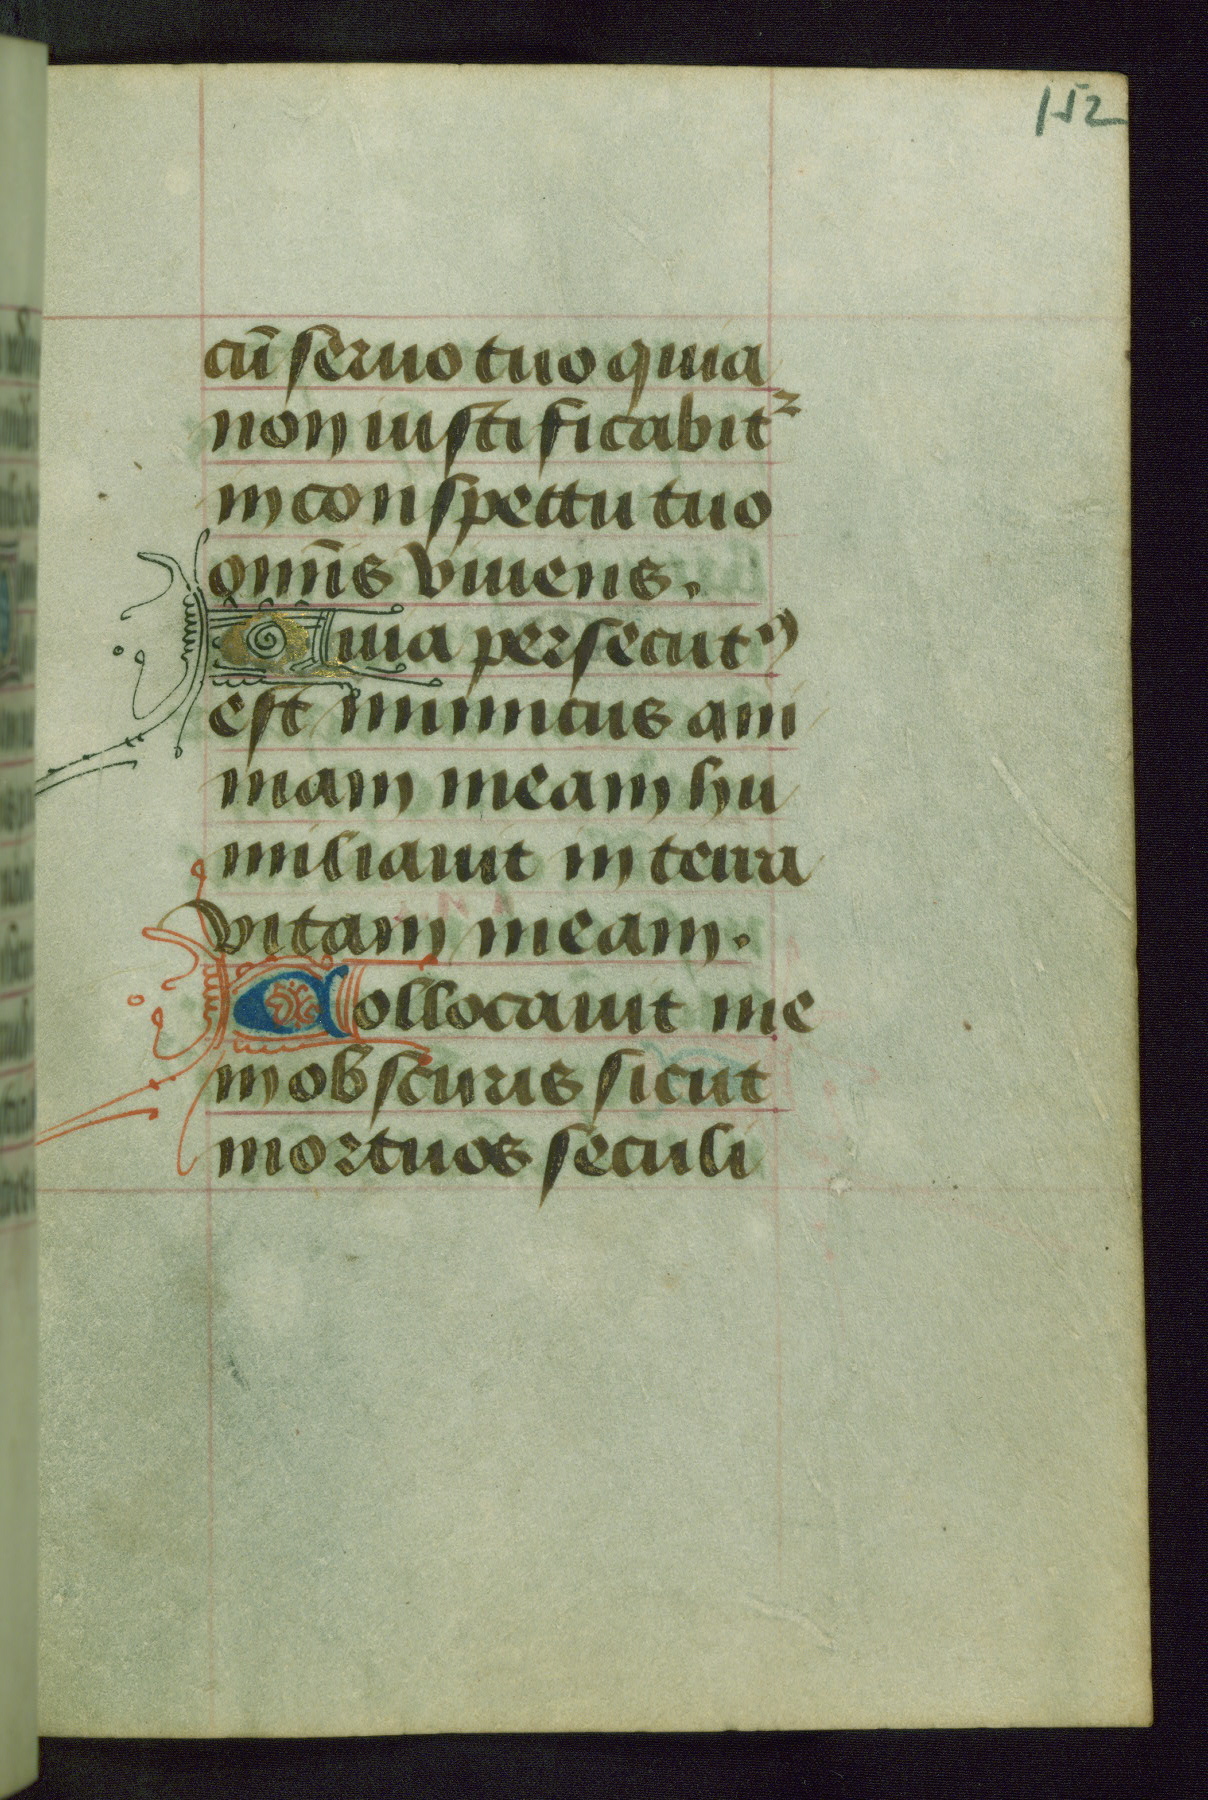 152
cū seruo tuo quia
non iustificabitᷣ
in conspectu tuo
omīs viuens.
Quia persecutꝰ
est inimicus ani
mam meam hu
miliauit in terra
vitam meam.
Collocauit me
in obscuris sicut
mortuos seculi